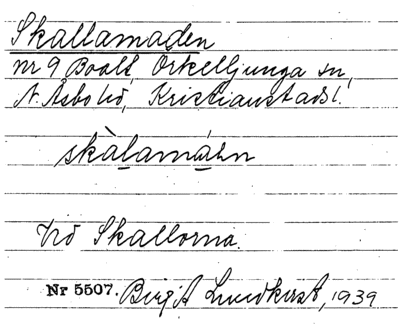 Skallamaden
nr 9 Boalt, Örkelljunga sn,
N. Åsbo hd, Kristianstads l.
skàlamáen
Vid Skallorna.
Nr 5507. Birgit Lundkvist, 1939